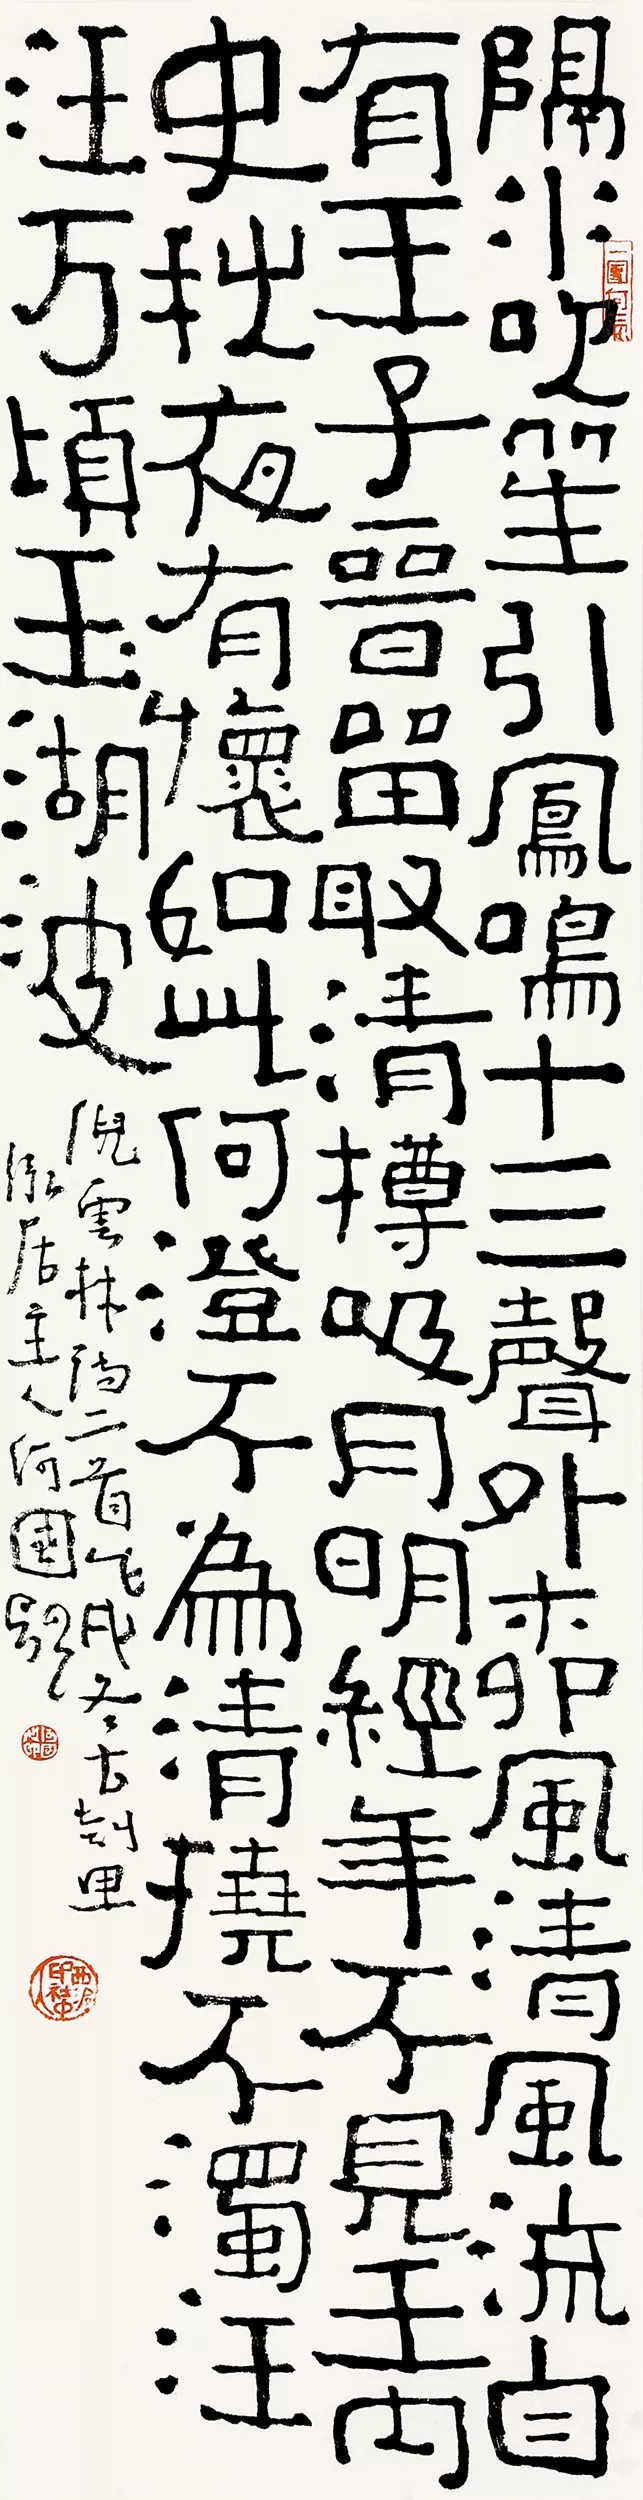 隔水吹笙引鳳鳴十三聲外柳風清風流自
有王子晉留取清樽吸月明經年不見王內
史杜夜有懷如此何澄不為清撓不濁汪
汪万頃玉湖波
倪雲林詩二首戊戌冬古刻里
泓居主人何國題
西泠印社中人